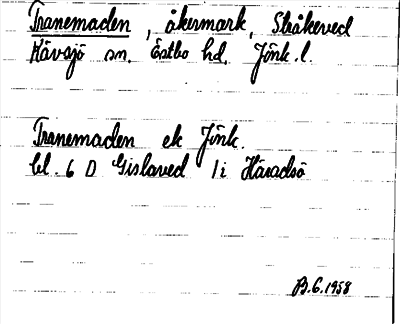 Tranemaden, åkermark, Stråkeved
Kävsjö sn. Östbo hd. Jönk. l.
Tranemaden ek Jönk.
bl. 6 D Gislaved 1i Häradsö
B.G. 1958